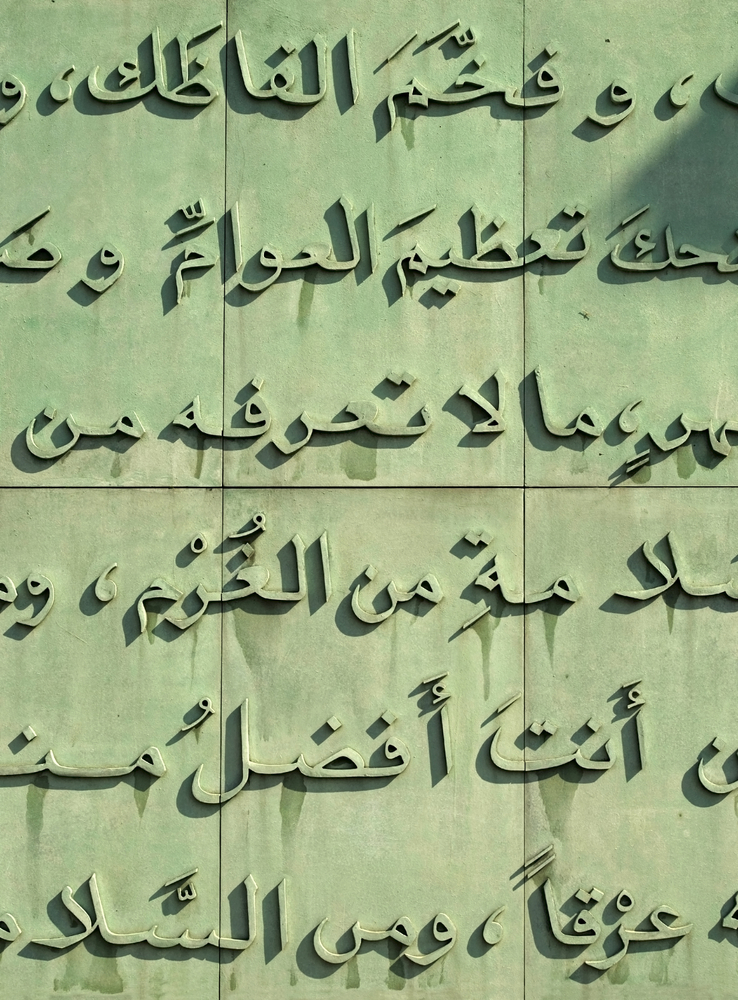 ، و فخّمَ الفاظَك ، و
ضحكَ تعظيمَ العوامِّ و
ما لا تعرفه من
سلا مةِ من الغُرْم ،
أنتَ أفضلُ
عرْقاً ، ومن السَّلا